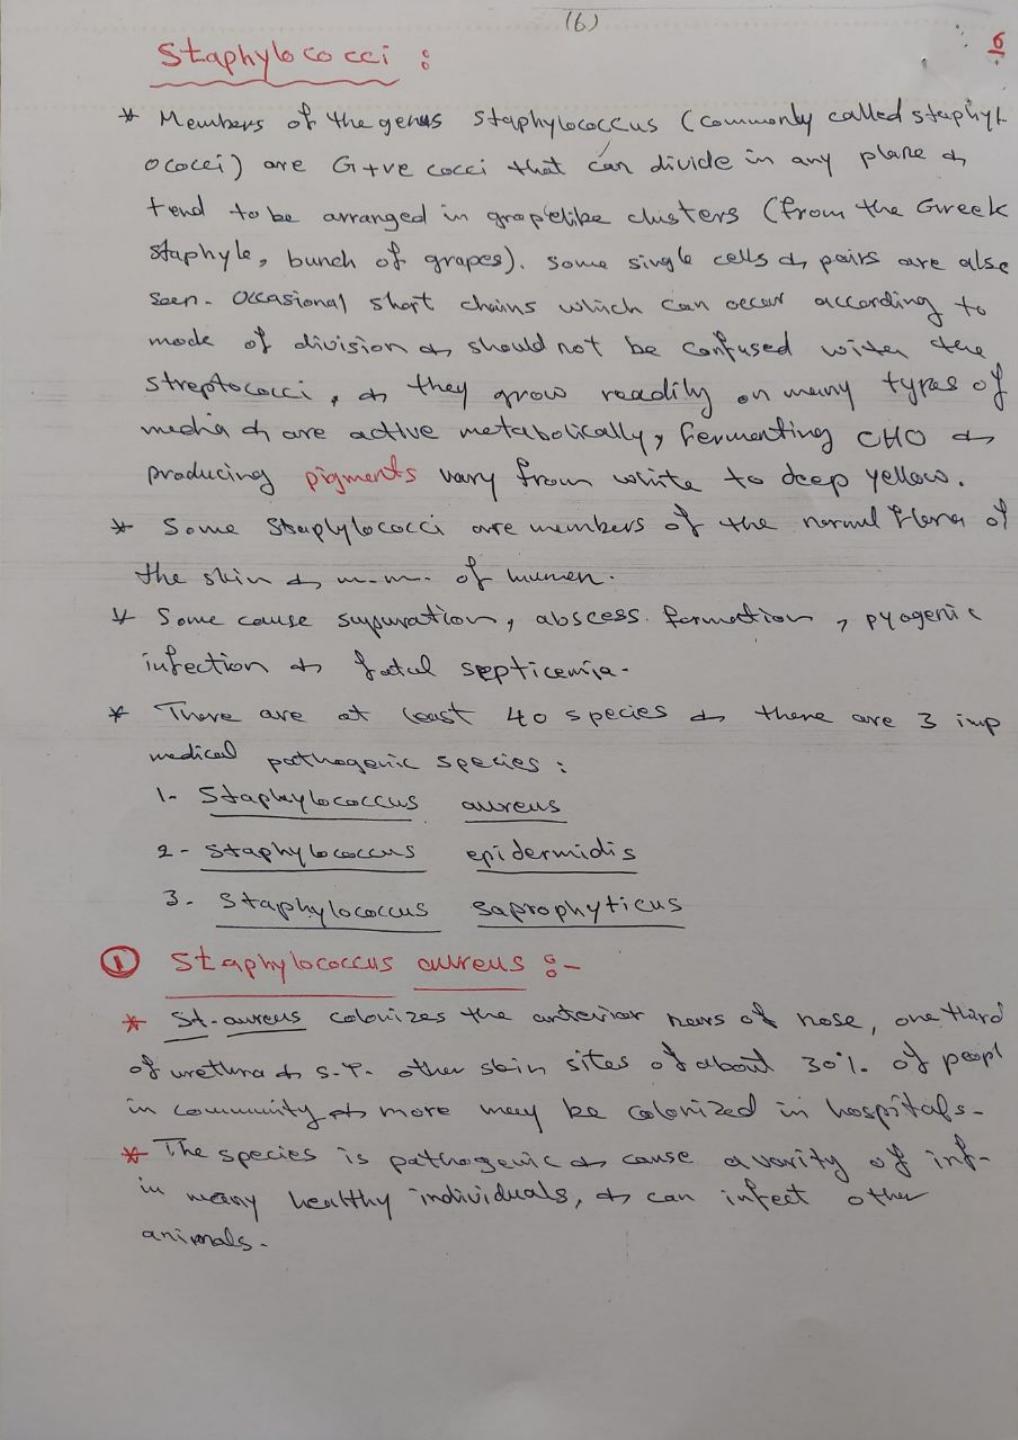 (6)
6
Staphylococci :
* Members of the genus staphylococcus (commonly called staphyl
ococci) are G+ve cocci that can divide in any plane &
tend to be arranged in grapelike clusters (from the Greek
staphyle, bunch of grapes). some single cells & pairs are also
seen. Occasional short chains which can occur according to
mode of division & should not be confused with the
streptococci, & they grow readily on many types of
media & are active metabolically, fermenting CHO &
producing pigments vary from white to deep yellow.
* Some Staplylococci are members of the normal flora of
the skin & m.m. of human.
* Some cause supuration, abscess formation, pyogenic
infection & fatal septicemia.
* There are at least 40 species & there are 3 imp
medical pathogenic species :
1- Staphylococcus aureus
2- Staphylococcus epidermidis
3. Staphylococcus saprophyticus
① Staphylococcus aureus :-
* St. aureus colonizes the anterior nars of nose, one third
of urethra & s.t. other skin sites of about 30%. of peopl
in community & more may be colonized in hospitals.
* The species is pathogenic & cause a varity of inf-
in many healthy individuals, & can infect other
animals.